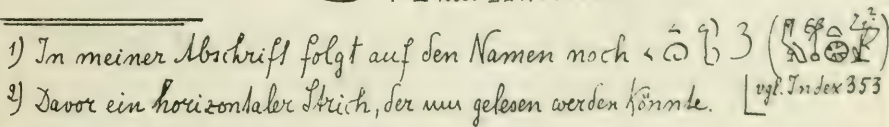 1) In meiner Abschrift folgt auf den Namen noch
2) Davor ein horizontaler Strich, der nur gelesen werden könnte. vgl. Index 353